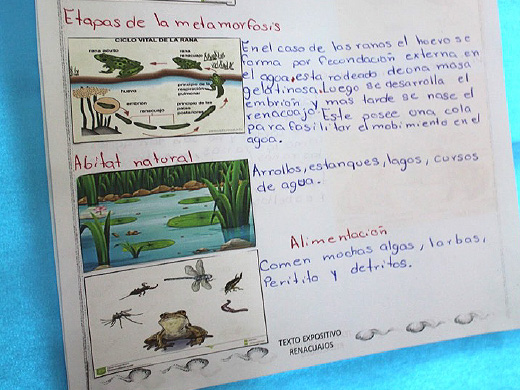 Etapas de la metamorfosis
CICLO VITAL DE LA RANA
rana adulto
rana
renacuajo
huevo
embrión
renacuajo
principio de la
respiración
pulmonar
principio de las
patas
posteriores
En el caso de las ranas el huevo se
forma por fecondación externa en
el agua, esta rodeado de ona masa
gelatinosa. Luego se desarrolla el
embrión y mas tarde se nase el
renacoajo. Este posee ona cola
para fasilitar el mobimiento en el
agoa.
Abitat natural
Arrollos, estanques, lagos, cursos
de agua.
Alimentación
Comen mochas algas, larbas,
Peritito y detritos.
TEXTO EXPOSITIVO
RENACUAJOS